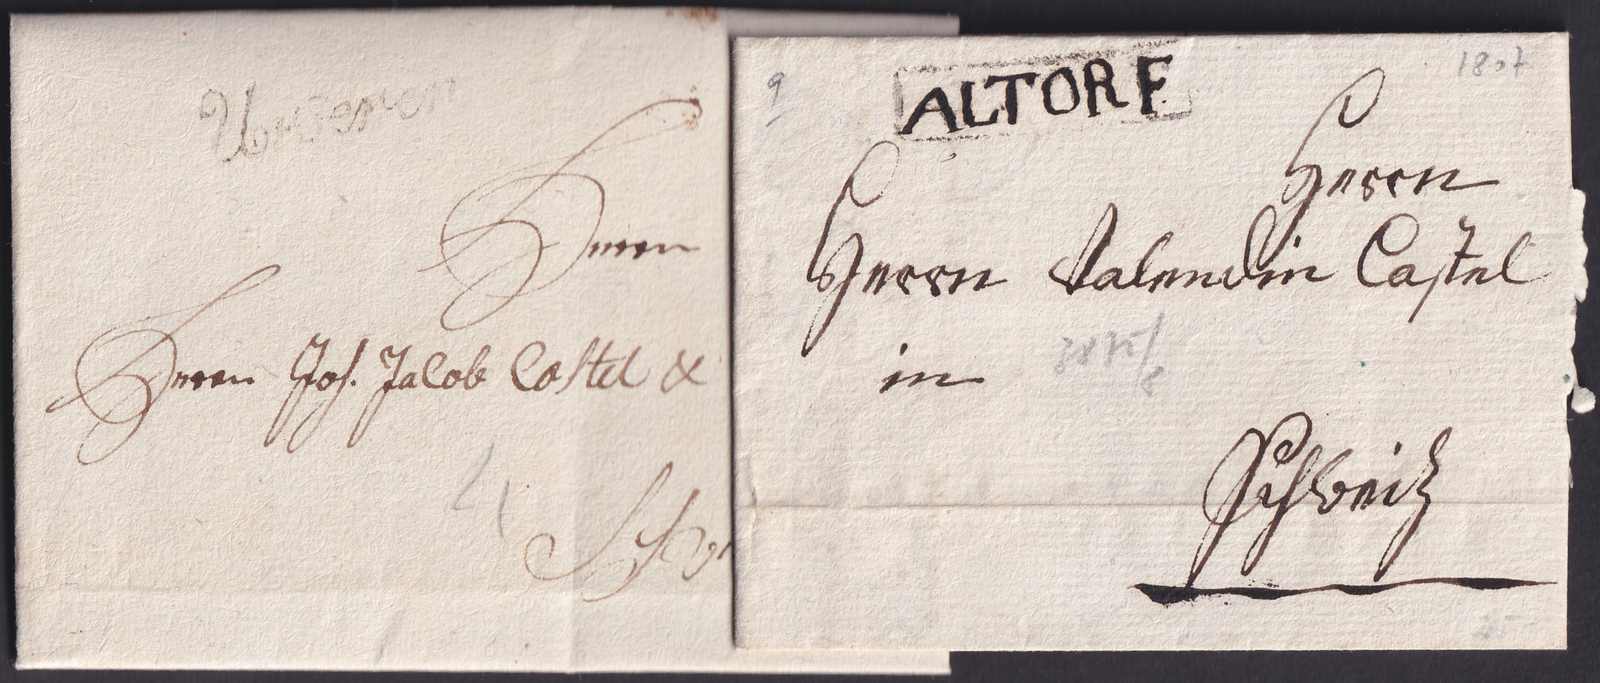 Urseren
Herrn
Herrn Joh. Jacob Castel &
4
9
ALTORF
1807
Herrn
Herrn Valendin Castel
in
Schweitz